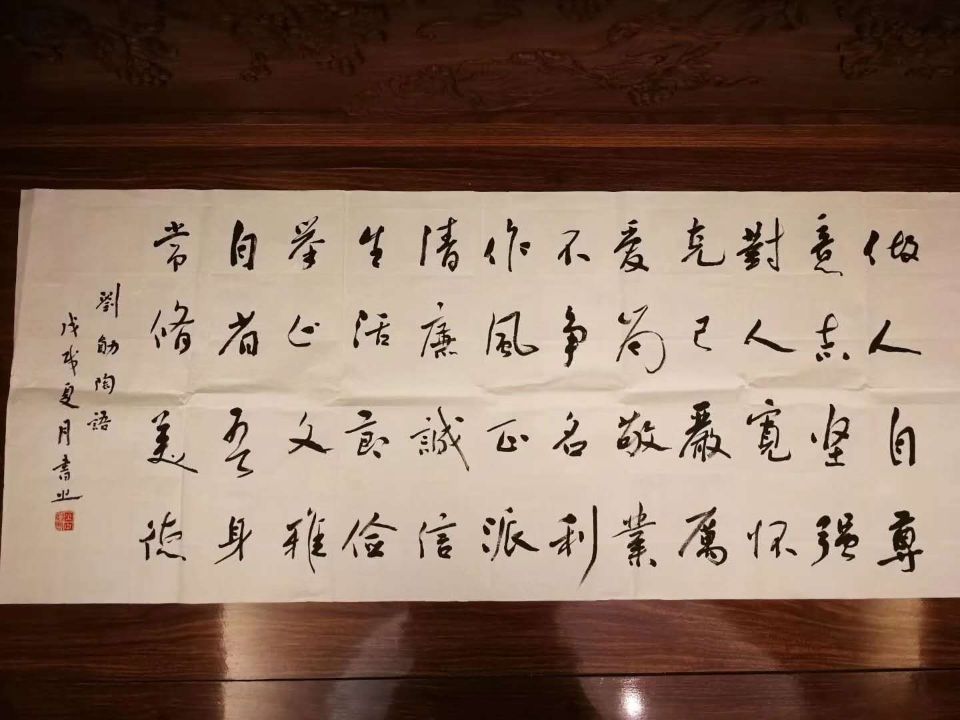 做人自尊
意志坚强
對人寬怀
克己嚴厲
愛岗敬業
不争名利
作風正派
清廉誠信
生活節俭
举止文雅
自省吾身
常脩美德
劉陶語
戊戌夏月書之